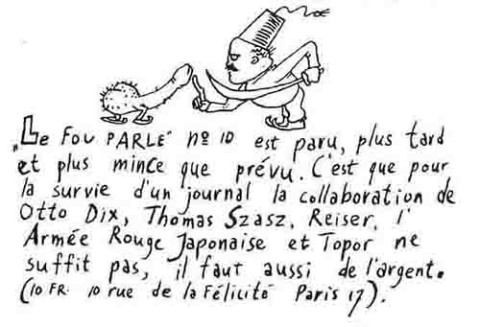 „Le Fou PARLE" nº 10 est paru, plus tard
et plus mince que prévu. C'est que pour
la survie d'un journal la collaboration de
Otto Dix, Thomas Szasz, Reiser, l'
Armée Rouge Japonaise et Topor ne
suffit pas, il faut aussi de l'argent.
(10 FR. 10 rue de la Félicité Paris 17).